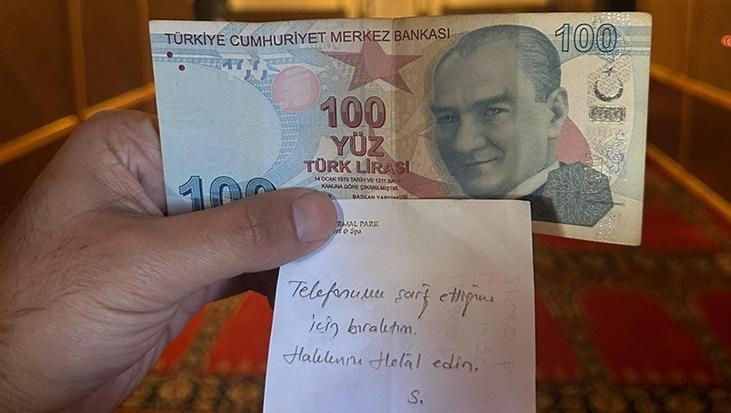 TÜRKİYE CUMHURİYET MERKEZ BANKASI
100
100
YÜZ
TÜRK LİRASI
14 OCAK 1970 TARİH VE 1211 SAYILI
KANUNA GÖRE ÇIKARILMIŞTIR.
BAŞKAN
100
RMAL PARK
& Spa
Telefonumu şarj ettiğim
için bıraktım.
Hakkınızı Helal edin.
S.